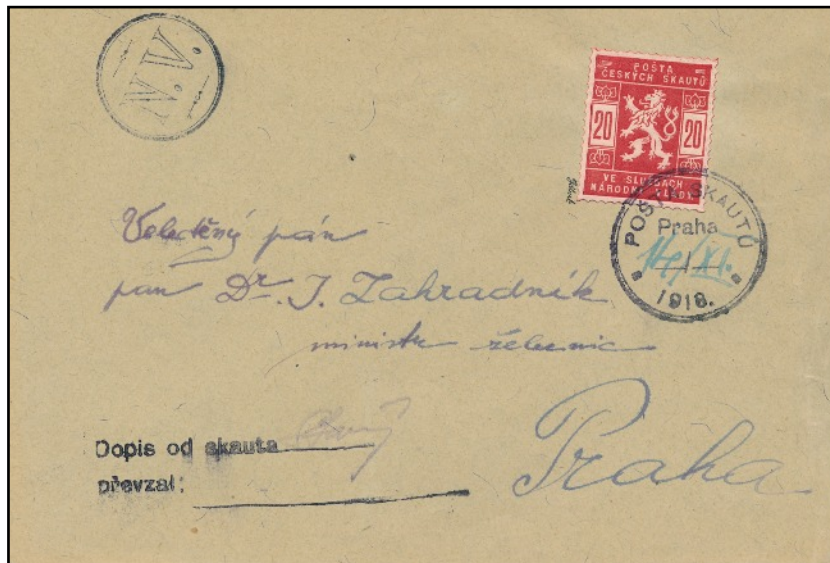 N.V.
POŠTA
ČESKÝCH SKAUTŮ
20 20
VE SLUŽBÁCH
NÁRODNÍ VLÁDY.
POŠTA SKAUTŮ
Praha
14/XI.
1918.
Veledůstojný pán
pan Dr. I. Zahradník
ministr železnic
Praha
Dopis od skauta
převzal: